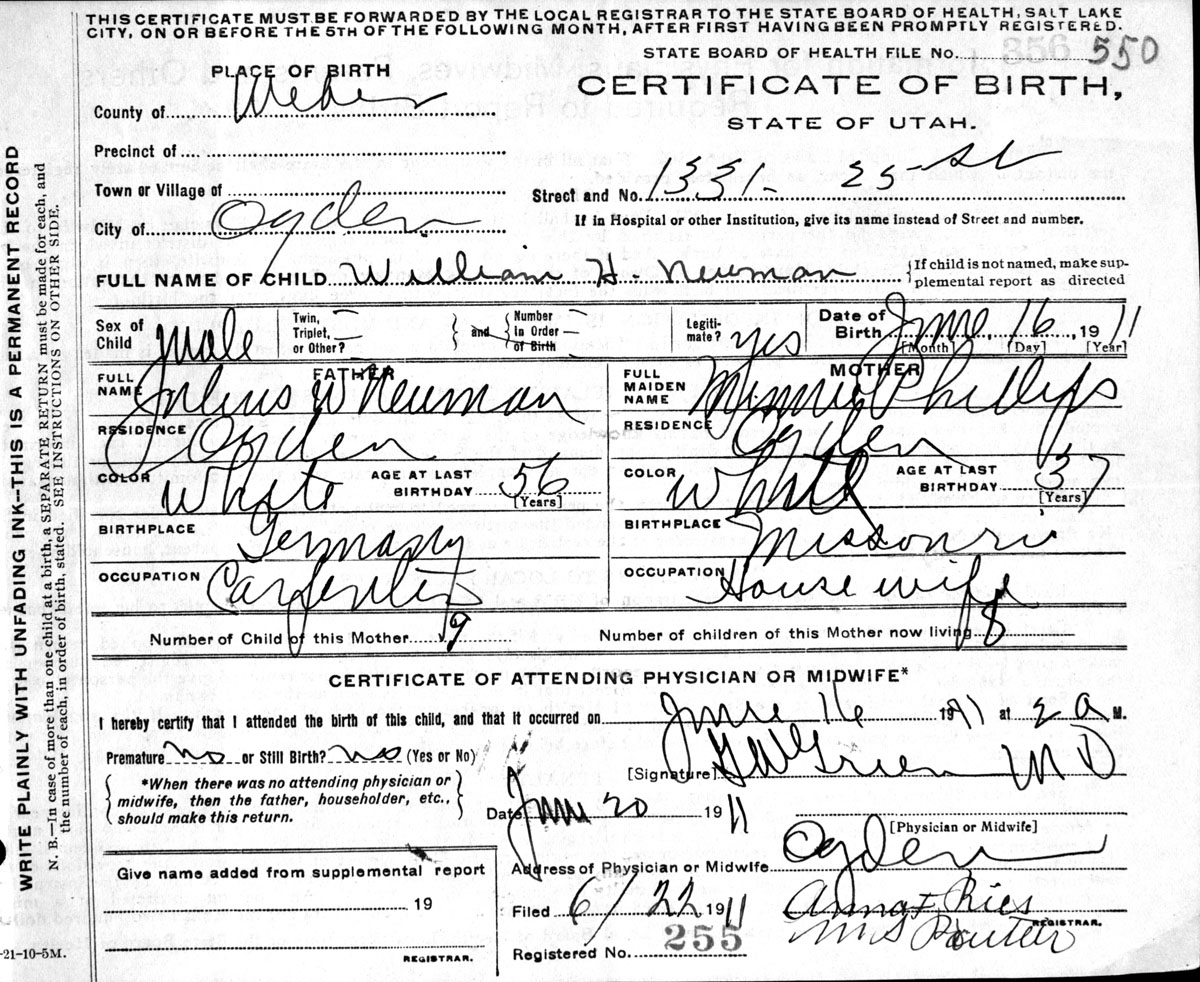 THIS CERTIFICATE MUST BE FORWARDED BY THE LOCAL REGISTRAR TO THE STATE BOARD OF HEALTH, SALT LAKE
CITY, ON OR BEFORE THE 5TH OF THE FOLLOWING MONTH, AFTER FIRST HAVING BEEN PROMPTLY REGISTERED.
STATE BOARD OF HEALTH FILE No. 356 550
PLACE OF BIRTH
CERTIFICATE OF BIRTH,
County of Weber
STATE OF UTAH.
Precinct of
Town or Village of
Street and No. 1331 - 25 St
City of Ogden
If in Hospital or other Institution, give its name instead of Street and number.
FULL NAME OF CHILD William H. Newman {If child is not named, make sup-
plemental report as directed
Sex of Child Male Twin, Triplet, or Other? } and { Number in Order of Birth Legiti-mate? yes Date of Birth June 16, 1911
[Month] [Day] [Year]
FATHER MOTHER
FULL NAME Julius W Newman FULL MAIDEN NAME Minnie Phillips
RESIDENCE Ogden RESIDENCE Ogden
COLOR White AGE AT LAST BIRTHDAY 56 [Years] COLOR White AGE AT LAST BIRTHDAY 37 [Years]
BIRTHPLACE Germany BIRTHPLACE Missouri
OCCUPATION Carpenter OCCUPATION House wife
Number of Child of this Mother 9 Number of children of this Mother now living 8
CERTIFICATE OF ATTENDING PHYSICIAN OR MIDWIFE*
I hereby certify that I attended the birth of this child, and that it occurred on June 16 1911 at 2 a M.
Premature no or Still Birth? no (Yes or No)
[Signature] Green M D
{ *When there was no attending physician or
midwife, then the father, householder, etc.,
should make this return. }
Date June 20 1911
[Physician or Midwife]
Give name added from supplemental report
Address of Physician or Midwife Ogden
19
Filed 6/22 1911 Anna F. Ries
REGISTRAR.
Registered No. 255
REGISTRAR.
-21-10-5M.
WRITE PLAINLY WITH UNFADING INK--THIS IS A PERMANENT RECORD
N. B.—In case of more than one child at a birth, a SEPARATE RETURN must be made for each, and
the number of each, in order of birth, stated. SEE INSTRUCTIONS ON OTHER SIDE.